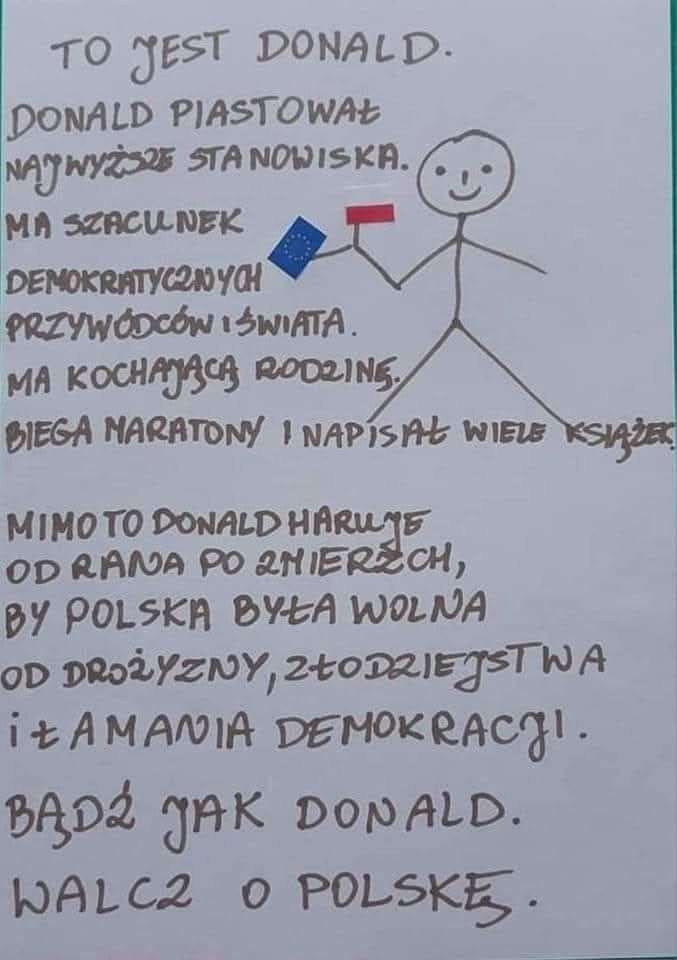 TO JEST DONALD.
DONALD PIASTOWAŁ
NAJWYŻSZE STANOWISKA.
MA SZACUNEK
DEMOKRATYCZNYCH
PRZYWÓDCÓW I ŚWIATA.
MA KOCHAJĄCĄ RODZINĘ.
BIEGA MARATONY I NAPISAŁ WIELE KSIĄŻEK.
MIMO TO DONALD HARUJE
OD RANA PO ZMIERZCH,
BY POLSKA BYŁA WOLNA
OD DROŻYZNY, ZŁODZIEJSTWA
i ŁAMANIA DEMOKRACJI.
BĄDŹ JAK DONALD.
WALCZ O POLSKĘ.